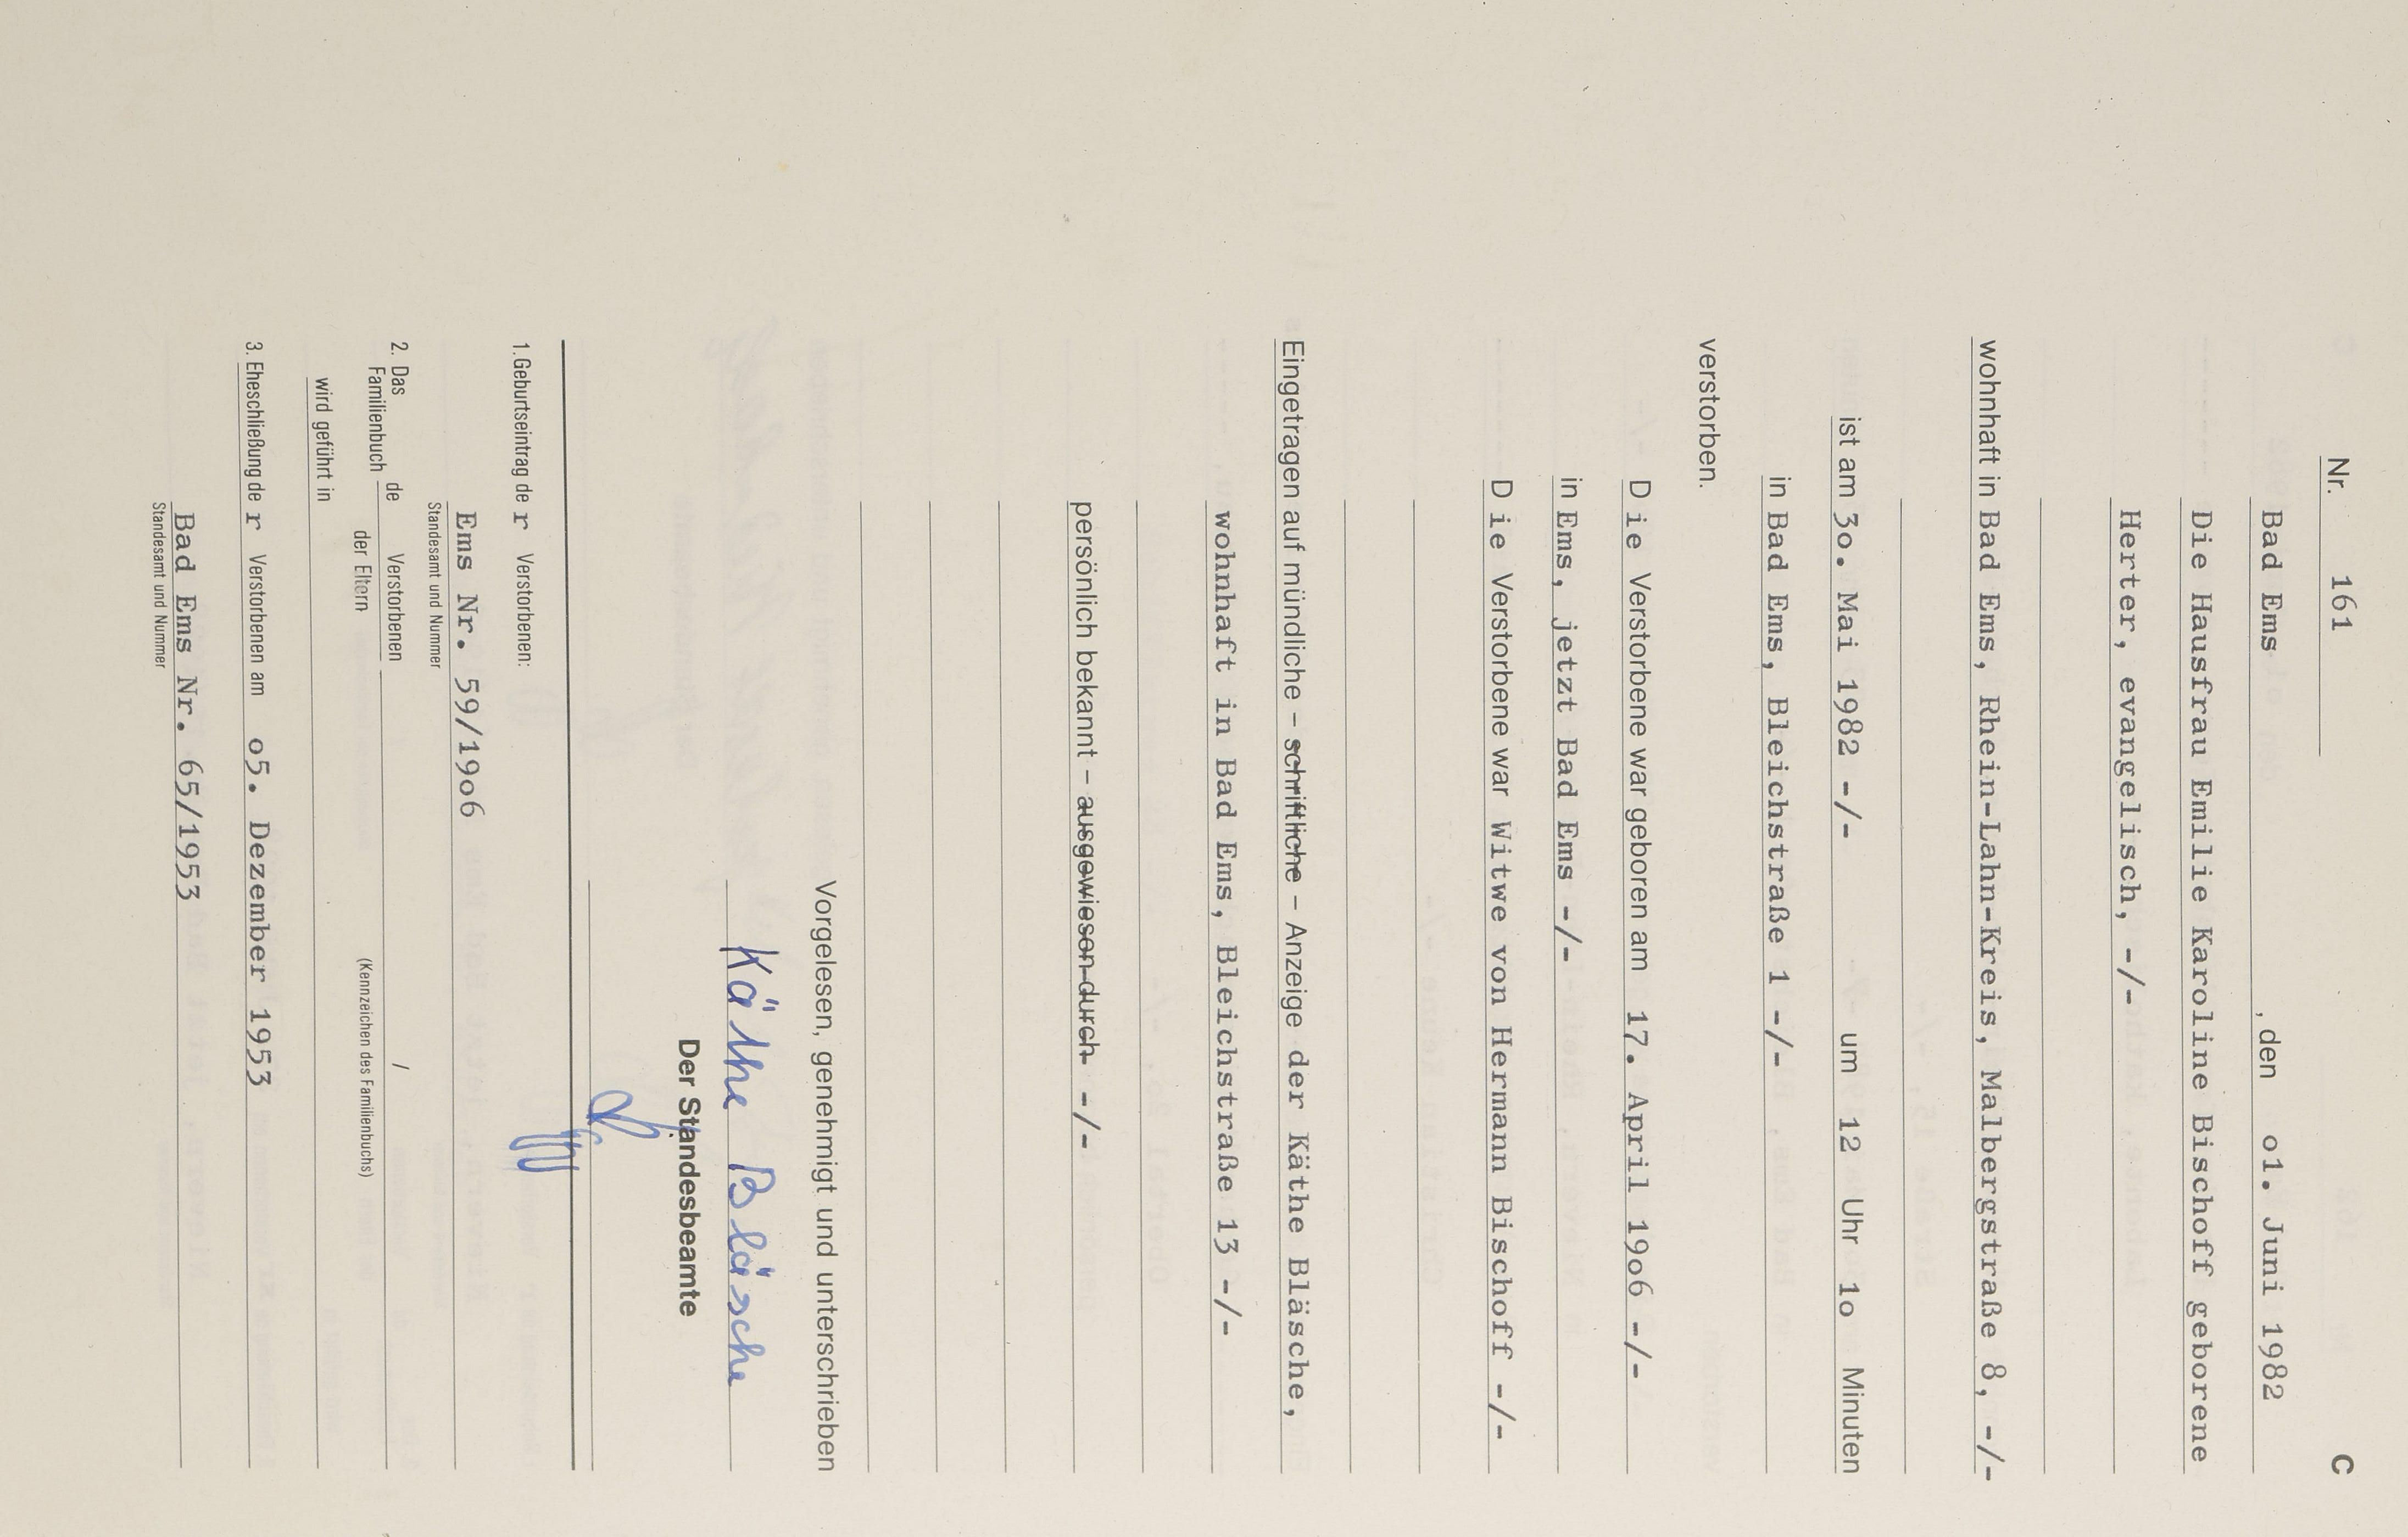 Nr. 161 C
Bad Ems , den o1. Juni 1982
Die Hausfrau Emilie Karoline Bischoff geborene
Herter, evangelisch, -/-
wohnhaft in Bad Ems, Rhein-Lahn-Kreis, Malbergstraße 8, -/-
ist am 3o. Mai 1982 -/- um 12 Uhr 1o Minuten
in Bad Ems, Bleichstraße 1 -/-
verstorben.
D ie Verstorbene war geboren am 17. April 19o6 -/-
in Ems, jetzt Bad Ems -/-
D ie Verstorbene war Witwe von Hermann Bischoff -/-
Eingetragen auf mündliche – schriftliche – Anzeige der Käthe Bläsche,
wohnhaft in Bad Ems, Bleichstraße 13 -/-
persönlich bekannt – ausgewiesen durch -/-
Vorgelesen, genehmigt und unterschrieben
Käthe Bläsche
Der Standesbeamte
1. Geburtseintrag de r Verstorbenen:
Ems Nr. 59/19o6
Standesamt und Nummer
2. Das Familienbuch de Verstorbenen /
der Eltern (Kennzeichen des Familienbuchs)
wird geführt in
3. Eheschließung de r Verstorbenen am o5. Dezember 1953
Bad Ems Nr. 65/1953
Standesamt und Nummer